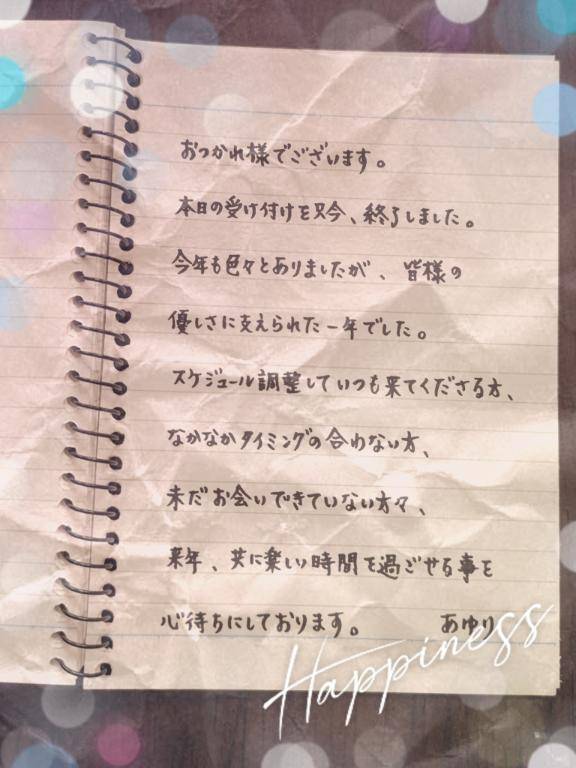 おつかれ様でございます。
本日の受け付けを只今、終了しました。
今年も色々とありましたが、皆様の
優しさに支えられた一年でした。
スケジュール調整していつも来てくださる方、
なかなかタイミングの合わない方、
未だお会いできていない方々、
来年、共に楽しい時間を過ごせる事を
心待ちにしております。 あゆり
Happiness